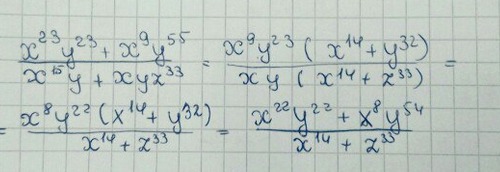 (x²³y²³ + x⁹y⁵⁵)/(x¹⁵y + xyz³³) = (x⁹y²³(x¹⁴+y³²))/(xy(x¹⁴+z³³)) =
= (x⁸y²²(x¹⁴+y³²))/(x¹⁴+z³³) = (x²²y²²+x⁸y⁵⁴)/(x¹⁴+z³³)